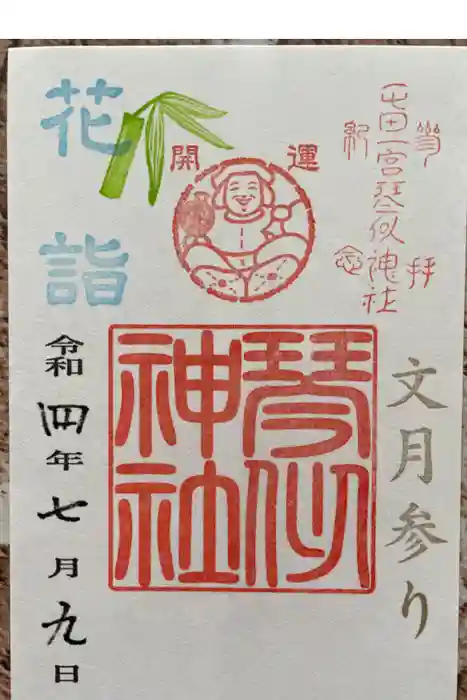 文月参り
参拝
屯田一宮琴似神社
紀念
開運
琴似
神社
花詣
令和四年七月九日